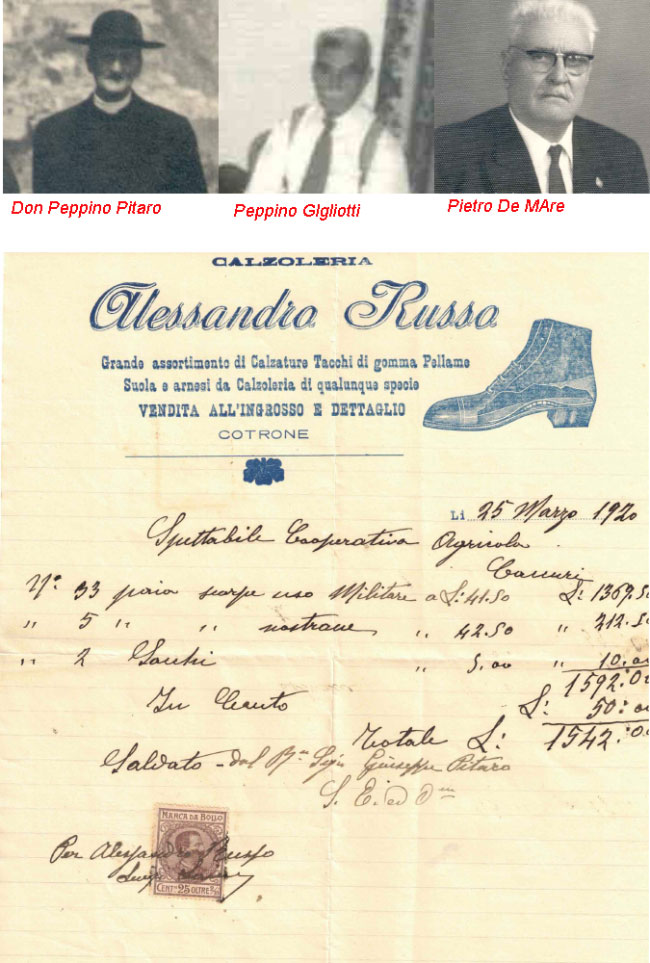 Don Peppino Pitaro
Peppino GIgliotti
Pietro De MAre
CALZOLERIA
Alessandro Russo
Grande assortimento di Calzature Tacchi di gomma Pellame
Suola e arnesi da Calzoleria di qualunque specie
VENDITA ALL'INGROSSO E DETTAGLIO
COTRONE
Li 25 Marzo 1920
Spettabile Cooperativa Agricola
N.° 33 paia scarpe uso Militare a L: 41.50 L: 1369.50
" 5 " " nostrane " 42.50 " 212.50
" 2 " 5.00 " 10.00
1592:00
L: 50:00
Totale L: 1542:00
Saldato - dal Giuseppe Pitaro
S. E. ed O.
MARCA DA BOLLO
Per Alessandro Russo
Luigi
CENT. 25 OLTRE